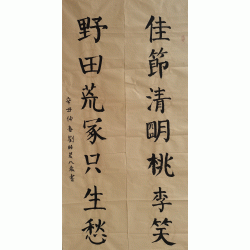 佳節清明桃李笑
野田荒冢只生愁